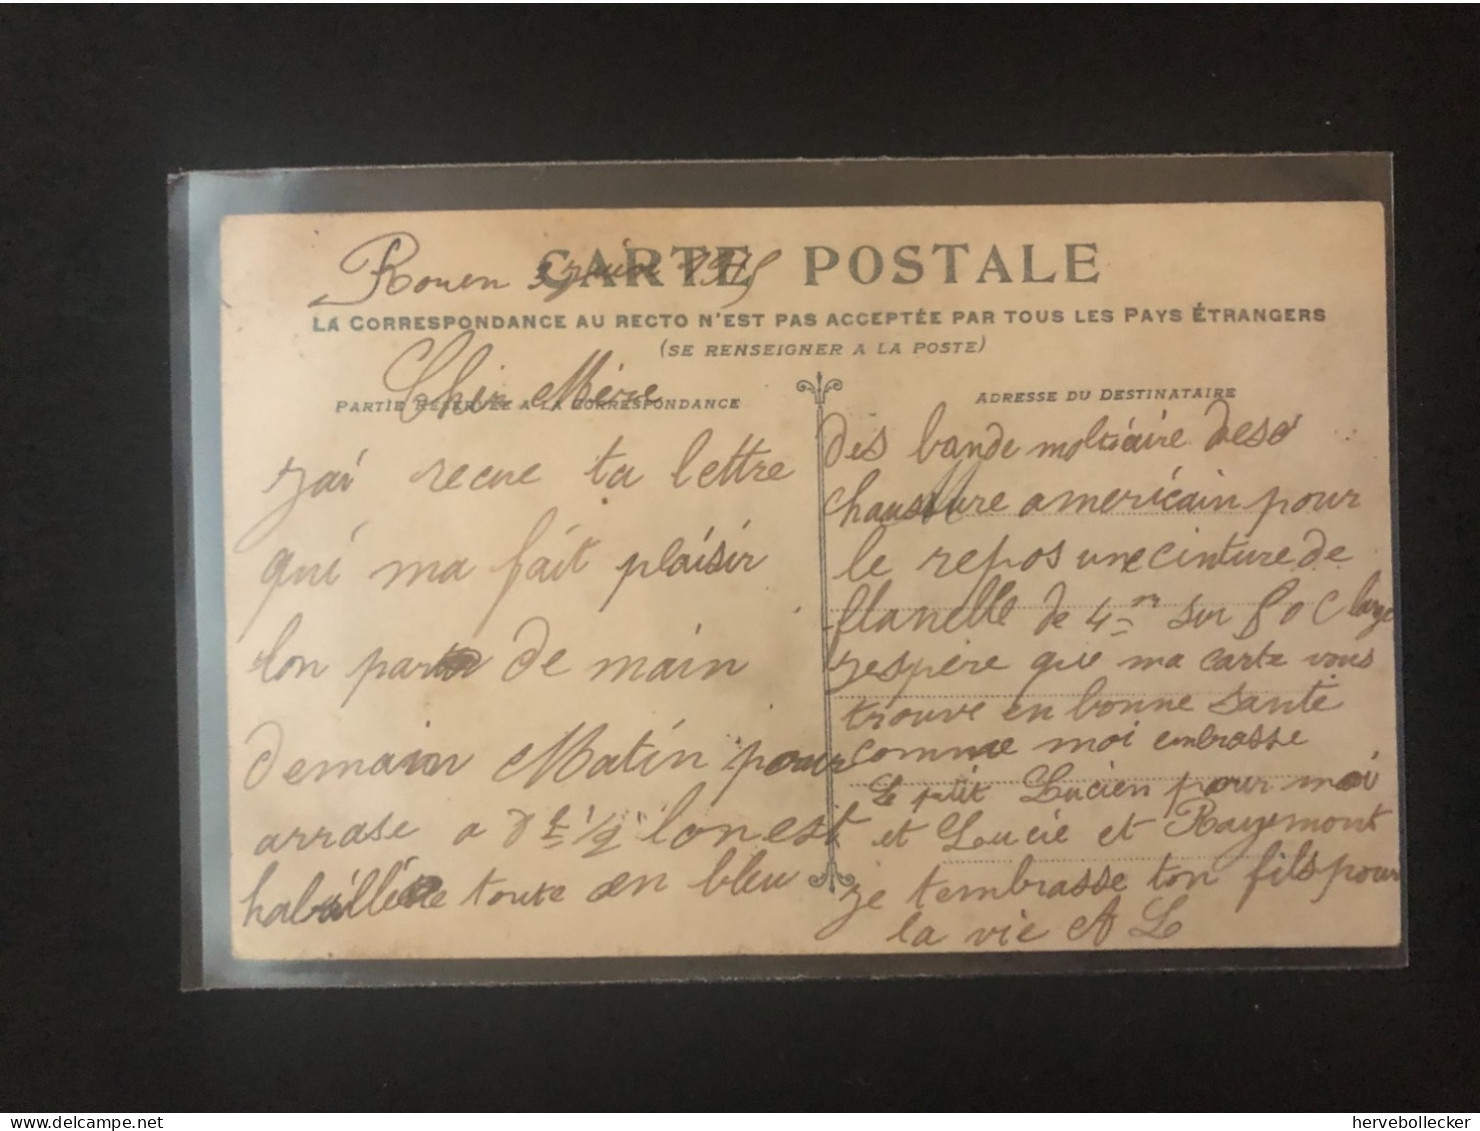 CARTE POSTALE
Rouen 3 juin 1915
LA CORRESPONDANCE AU RECTO N'EST PAS ACCEPTÉE PAR TOUS LES PAYS ÉTRANGERS
(SE RENSEIGNER A LA POSTE)
PARTIE RÉSERVÉE A LA CORRESPONDANCE
Cher Mère
jai recue ta lettre
qui ma fait plaisir
lon part de main
demain Matin pour
arrase a 7 h 1/2 lon est
habillée toute en bleu
ADRESSE DU DESTINATAIRE
des bande moltiaire des
chaussure americain pour
le repos une cinture de
flanelle de 4 m sur 50 C large
jespère que ma carte vous
trouve en bonne sante
comme moi embrasse
Le petit Lucien pour moi
et Lucie et Raymont
je tembrasse ton fils pour
la vie A L
hervebollecker